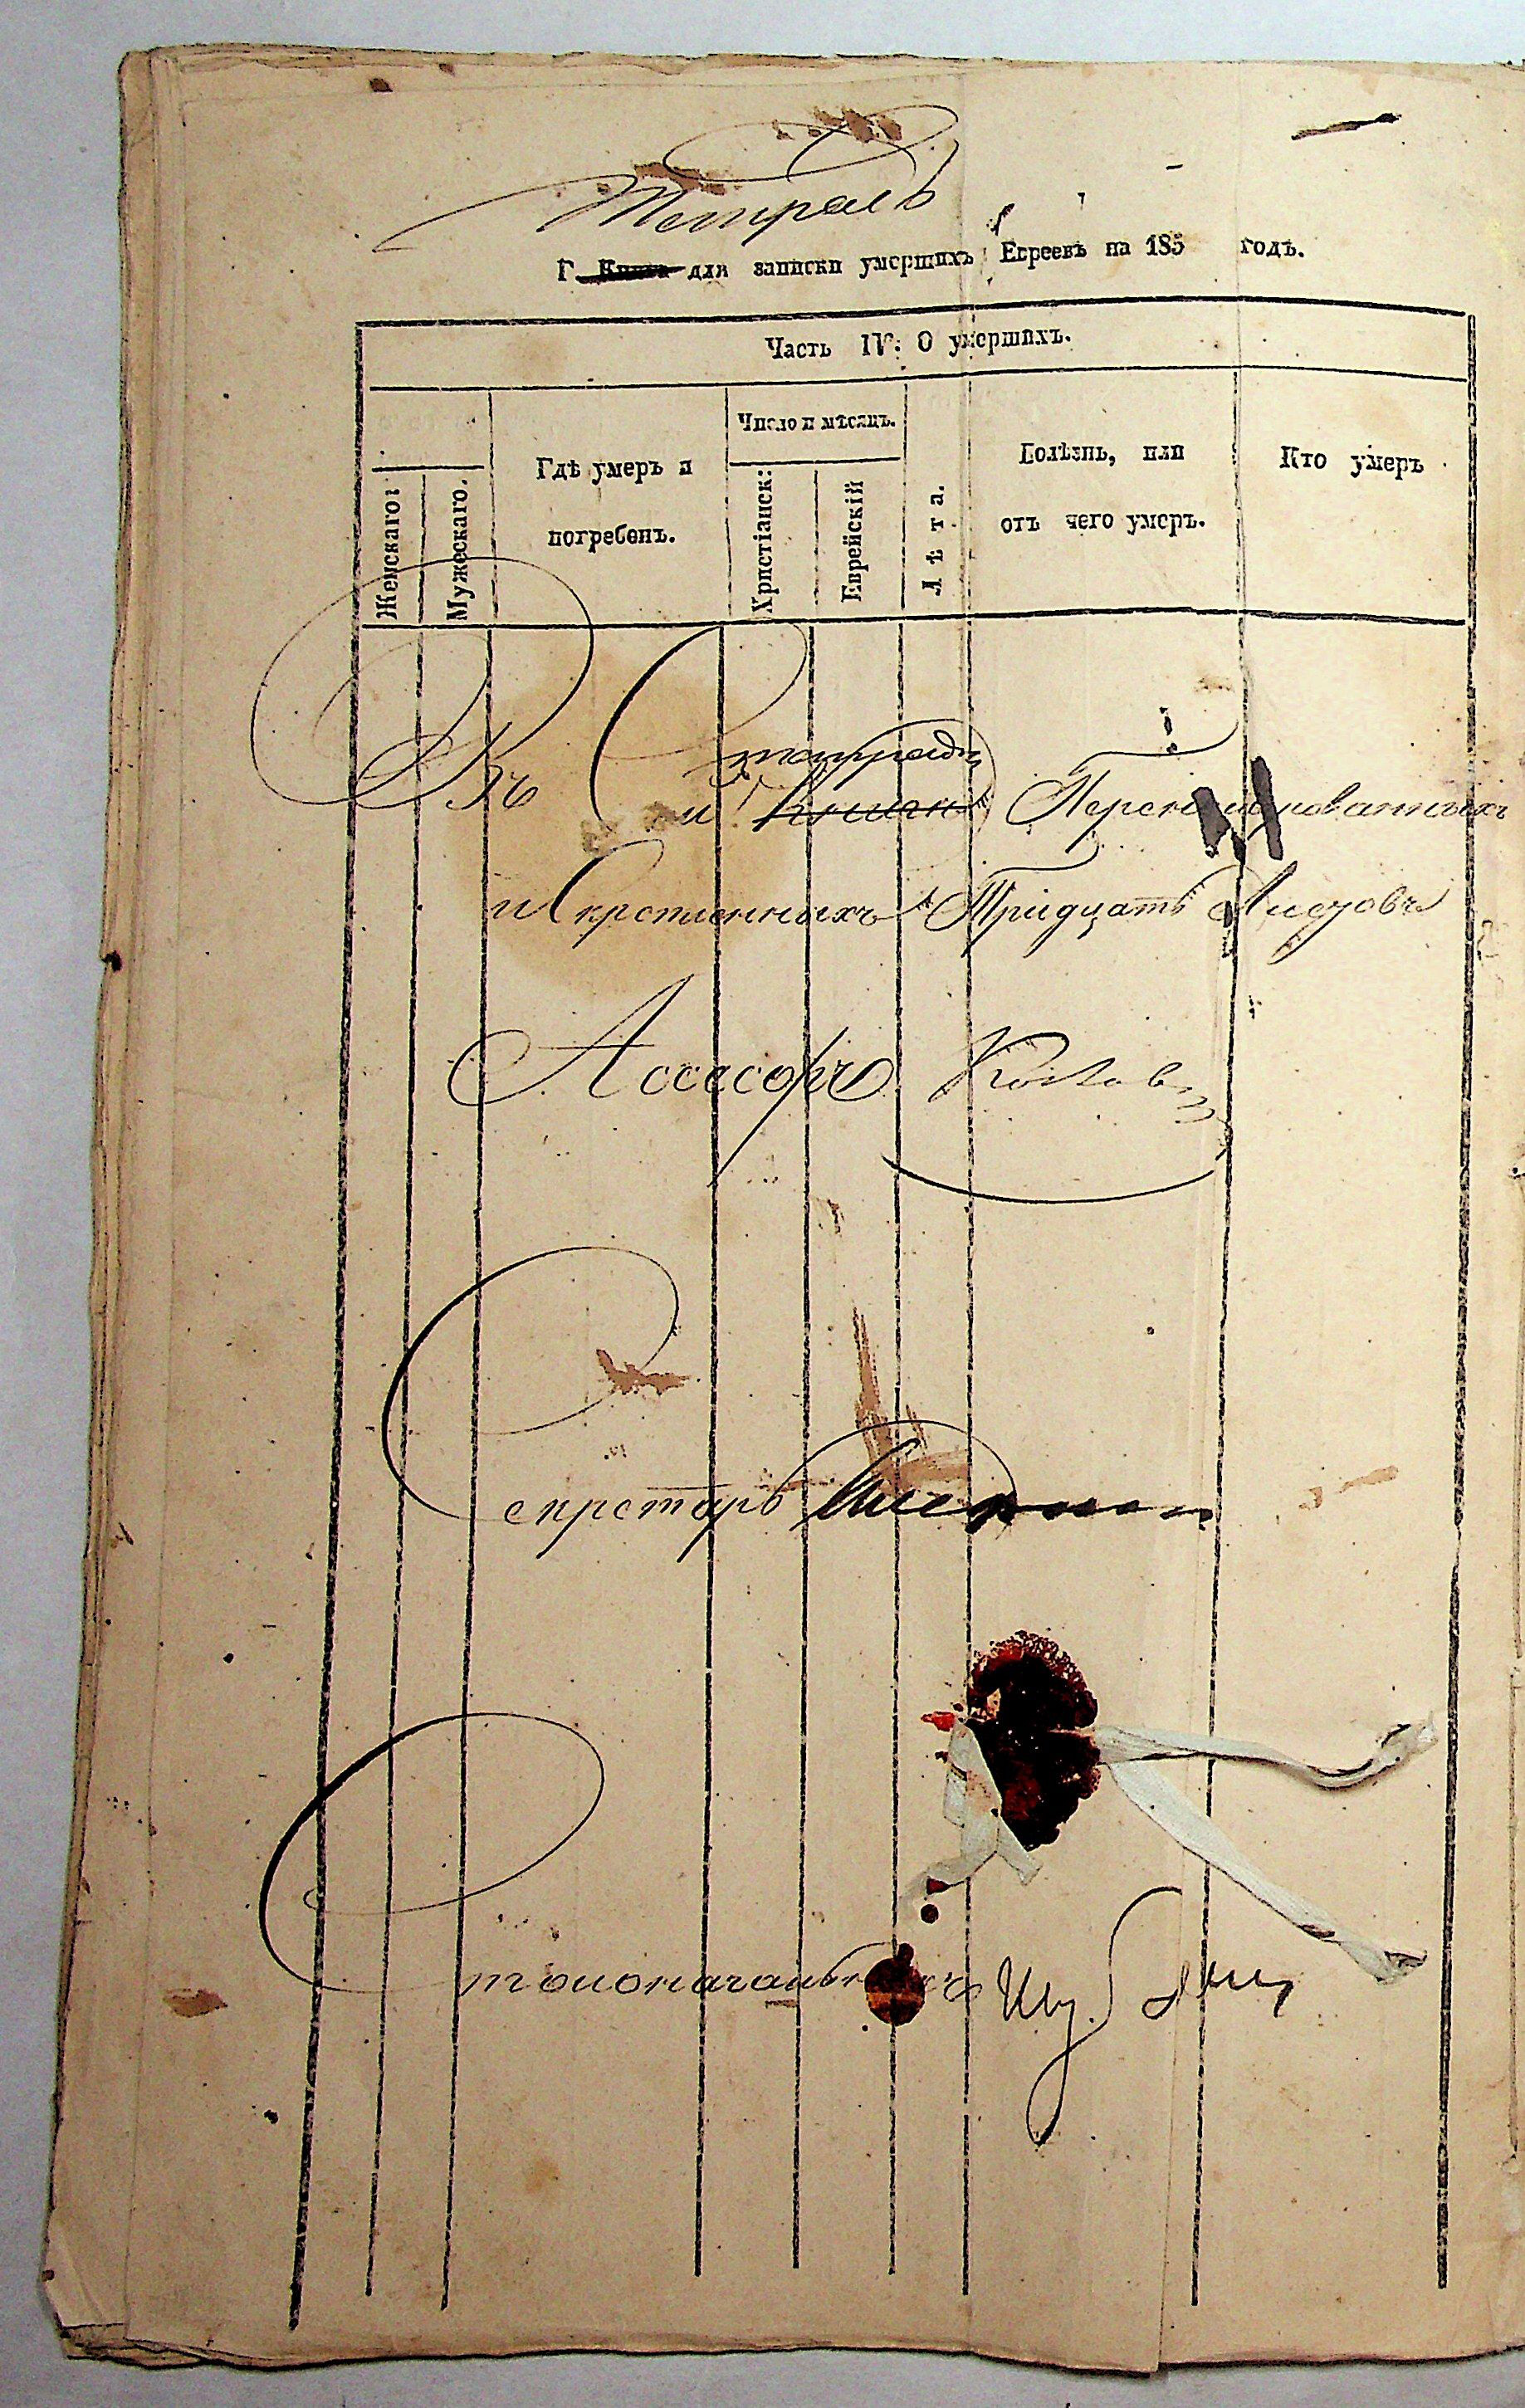 Тетрадь
Г. Книга для записки умершихъ Евреевъ на 185 годъ.
Часть IV. О умершихъ.
Женскаго:
Мужескаго.
Гдѣ умеръ и
погребенъ.
Число и мѣсяцъ.
Христіанск:
Еврейскій
Лѣта.
Болѣзнь, или
отъ чего умеръ.
Кто умеръ
тетради
Въ сей Книгѣ Перенумерованныхъ
и Скрепленныхъ Тридцать Листовъ
Ассесоръ
Секретарь
Столоначальникъ